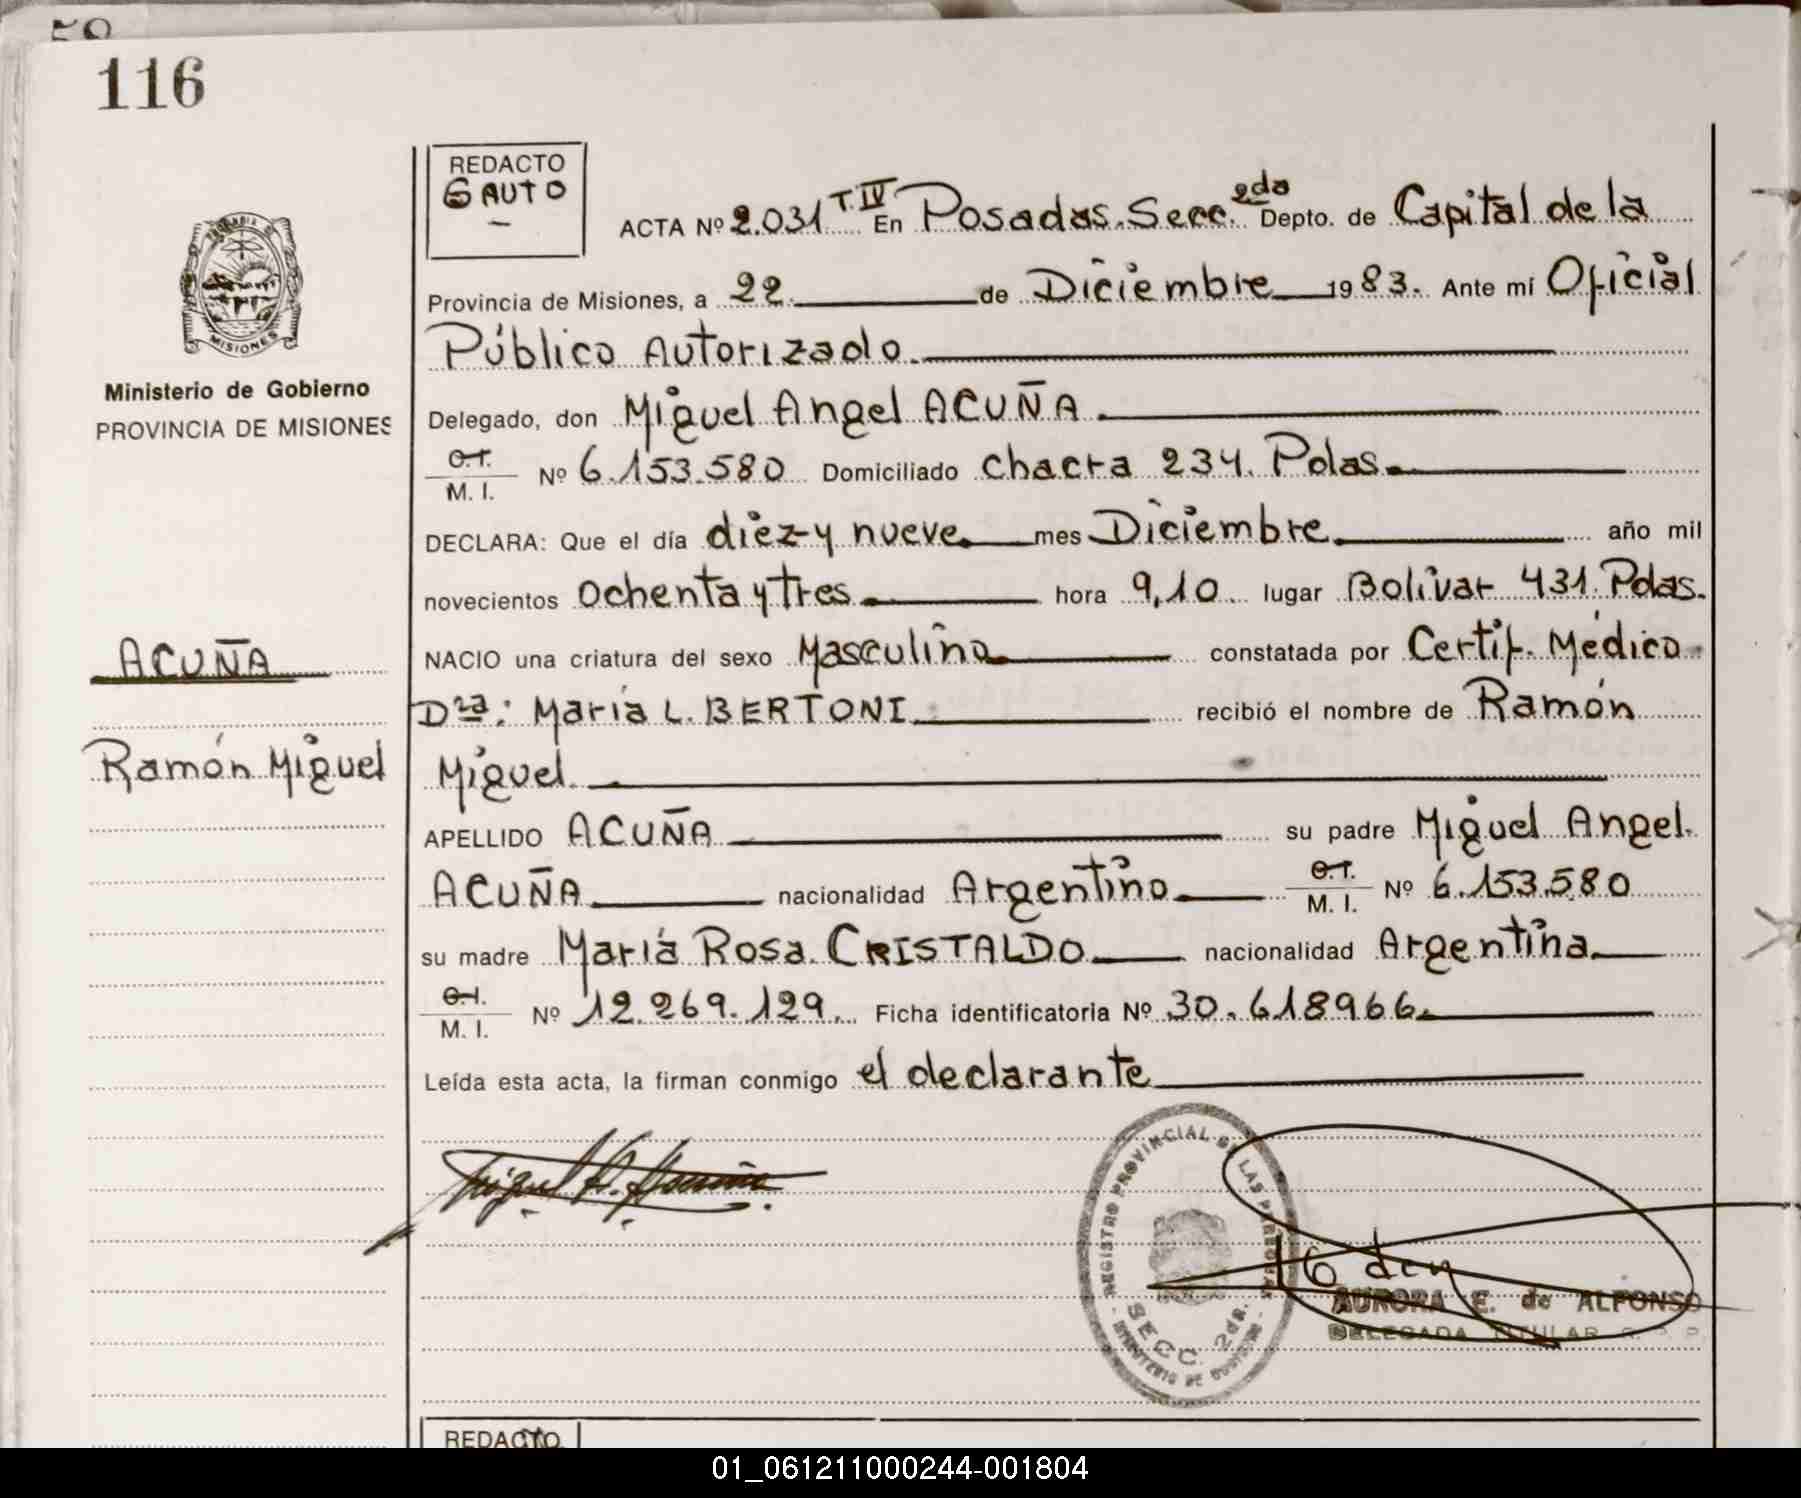 116
REDACTO
GAUTO
ACTA Nº 2.031 T.IV En Posadas. Secc. 2da Depto. de Capital de la
Provincia de Misiones, a 22 de Diciembre 1983. Ante mí Oficial
Público Autorizado.
Delegado, don Miguel Angel ACUÑA.
C.I. M. I. Nº 6.153.580 Domiciliado Chacra 234. Pdas.
DECLARA: Que el día diez y nueve mes Diciembre año mil
novecientos ochenta y tres hora 9,10 lugar Bolívar 431. Pdas.
NACIO una criatura del sexo Masculino constatada por Certif. Médico
Dra: María L. BERTONI. recibió el nombre de Ramón
Miguel.
APELLIDO ACUÑA su padre Miguel Angel
ACUÑA nacionalidad Argentino C.I. M. I. Nº 6.153.580
su madre María Rosa CRISTALDO nacionalidad Argentina
C.I. M. I. Nº 12.269.129. Ficha identificatoria Nº 30.618966.
Leída esta acta, la firman conmigo el declarante
MISIONES
Ministerio de Gobierno
PROVINCIA DE MISIONES
ACUÑA
Ramón Miguel
Miguel A. Acuña
REGISTRO PROVINCIAL DE LAS PERSONAS
SECC. 2da.
MINISTERIO DE GOBIERNO
AURORA E. de ALFONSO
DELEGADA TITULAR R. P. P.
REDACTO
01_061211000244-001804